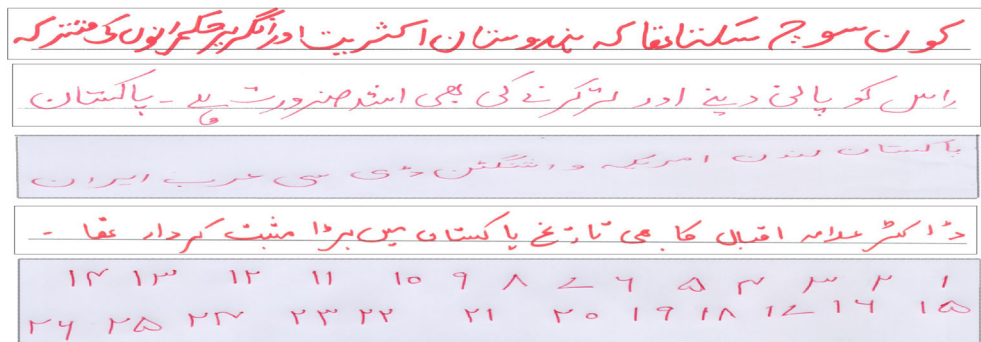 کون سوچ سکتا تھا کہ ہندوستان اکثریت اور انگریز حکمرانوں کی مشترکہ
اس کو پانی دینے اور لڑکرنے کی بھی اشد ضرورت ہے ۔ پاکستان
پاکستان لندن امریکہ واشنگٹن ڈی سی عرب ایران
ڈاکٹر علامہ اقبال کا بھی تاریخ پاکستان میں بڑا مثبت کردار تھا ۔
۱ ۲ ۳ ۴ ۵ ۶ ۷ ۸ ۹ ۱۰ ۱۱ ۱۲ ۱۳ ۱۴
۱۵ ۱۶ ۱۷ ۱۸ ۱۹ ۲۰ ۲۱ ۲۲ ۲۳ ۲۴ ۲۵ ۲۶